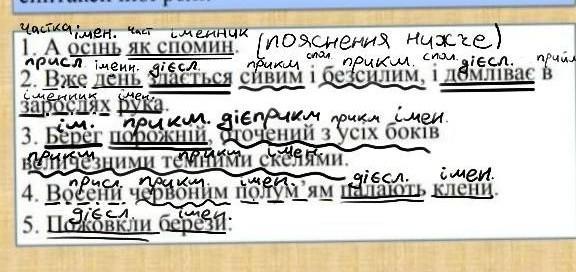 частка імен. част іменник
1. А осінь як спомин. (пояснення нижче)
присл. іменн. дієсл. прикм спол. прикм. спол. дієсл. прийм
2. Вже день здається сивим і безсилим, і домліває в
іменник імен.
зарослях рука.
ім. прикм. дієприкм прикм імен.
3. Берег порожній, оточений з усіх боків
прикм прикм імен.
величезними темними скелями.
присл. прикм. імен. дієсл. імен.
4. Восени червоним полум'ям палають клени.
дієсл. імен.
5. Пожовкли берези: